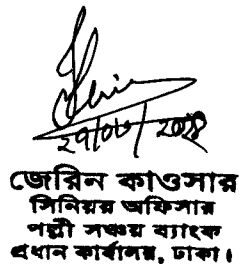 জেরিন কাওসার
সিনিয়র অফিসার
পল্লী সঞ্চয় ব্যাংক
প্রধান কার্যালয়, ঢাকা।